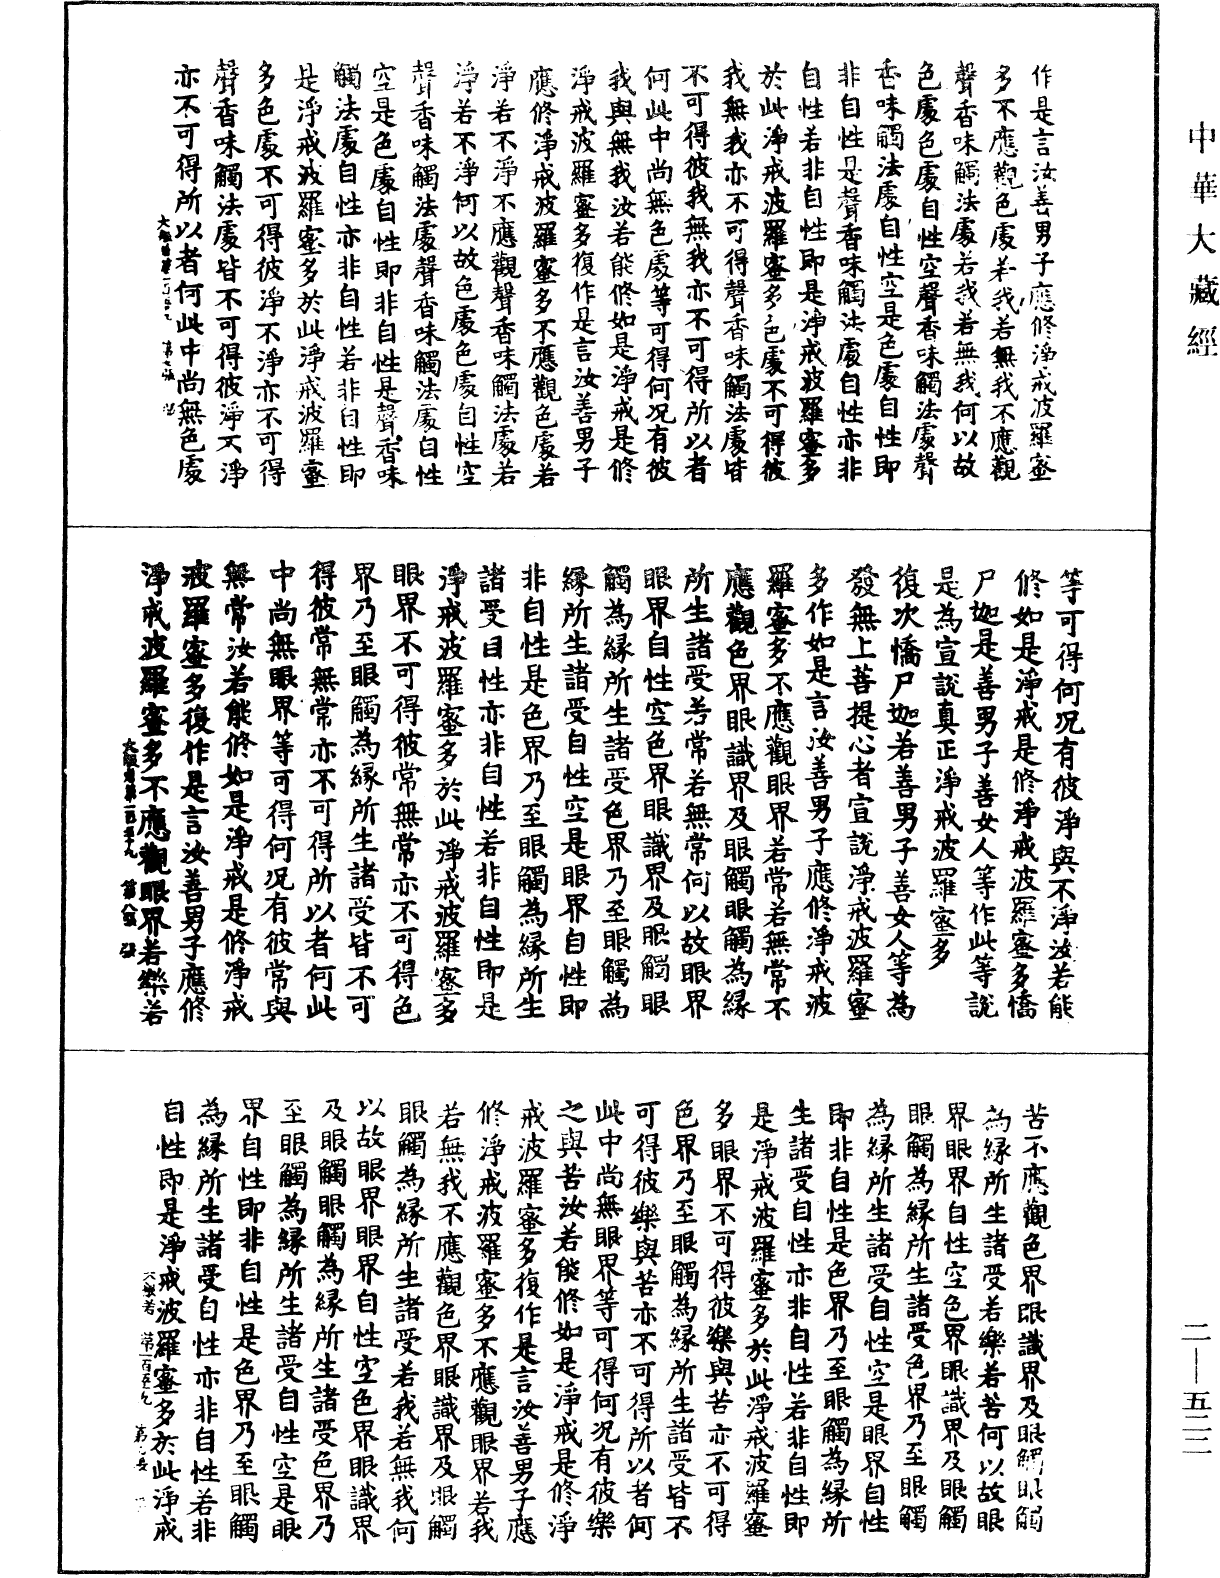 中華大藏經
作是言汝善男子應修淨戒波羅蜜
多不應觀色處若我若無我不應觀
聲香味觸法處若我若無我何以故
色處色處自性空聲香味觸法處聲
香味觸法處自性空是色處自性即
非自性是聲香味觸法處自性亦非
自性若非自性即是淨戒波羅蜜多
於此淨戒波羅蜜多色處不可得彼
我無我亦不可得聲香味觸法處皆
不可得彼我無我亦不可得所以者
何此中尚無色處等可得何況有彼
我與無我汝若能修如是淨戒是修
淨戒波羅蜜多復作是言汝善男子
應修淨戒波羅蜜多不應觀色處若
淨若不淨不應觀聲香味觸法處若
淨若不淨何以故色處色處自性空
聲香味觸法處聲香味觸法處自性
空是色處自性即非自性是聲香味
觸法處自性亦非自性若非自性即
是淨戒波羅蜜多於此淨戒波羅蜜
多色處不可得彼淨不淨亦不可得
聲香味觸法處皆不可得彼淨不淨
亦不可得所以者何此中尚無色處
等可得何況有彼淨與不淨汝若能
修如是淨戒是修淨戒波羅蜜多憍
尸迦是善男子善女人等作此等說
是為宣說真正淨戒波羅蜜多
復次憍尸迦若善男子善女人等為
發無上菩提心者宣說淨戒波羅蜜
多作如是言汝善男子應修淨戒波
羅蜜多不應觀眼界若常若無常不
應觀色界眼識界及眼觸眼觸為緣
所生諸受若常若無常何以故眼界
眼界自性空色界眼識界及眼觸眼
觸為緣所生諸受色界乃至眼觸為
緣所生諸受自性空是眼界自性即
非自性是色界乃至眼觸為緣所生
諸受自性亦非自性若非自性即是
淨戒波羅蜜多於此淨戒波羅蜜多
眼界不可得彼常無常亦不可得色
界乃至眼觸為緣所生諸受皆不可
得彼常無常亦不可得所以者何此
中尚無眼界等可得何況有彼常與
無常汝若能修如是淨戒是修淨戒
波羅蜜多復作是言汝善男子應修
淨戒波羅蜜多不應觀眼界若樂若
大般若第一百五十九 第八張
苦不應觀色界眼識界及眼觸眼觸
為緣所生諸受若樂若苦何以故眼
界眼界自性空色界眼識界及眼觸
眼觸為緣所生諸受色界乃至眼觸
為緣所生諸受自性空是眼界自性
即非自性是色界乃至眼觸為緣所
生諸受自性亦非自性若非自性即
是淨戒波羅蜜多於此淨戒波羅蜜
多眼界不可得彼樂與苦亦不可得
色界乃至眼觸為緣所生諸受皆不
可得彼樂與苦亦不可得所以者何
此中尚無眼界等可得何況有彼樂
之與苦汝若能修如是淨戒是修淨
戒波羅蜜多復作是言汝善男子應
修淨戒波羅蜜多不應觀眼界若我
若無我不應觀色界眼識界及眼觸
眼觸為緣所生諸受若我若無我何
以故眼界眼界自性空色界眼識界
及眼觸眼觸為緣所生諸受色界乃
至眼觸為緣所生諸受自性空是眼
界自性即非自性是色界乃至眼觸
為緣所生諸受自性亦非自性若非
自性即是淨戒波羅蜜多於此淨戒
大般若 第一百五九
二—五二二